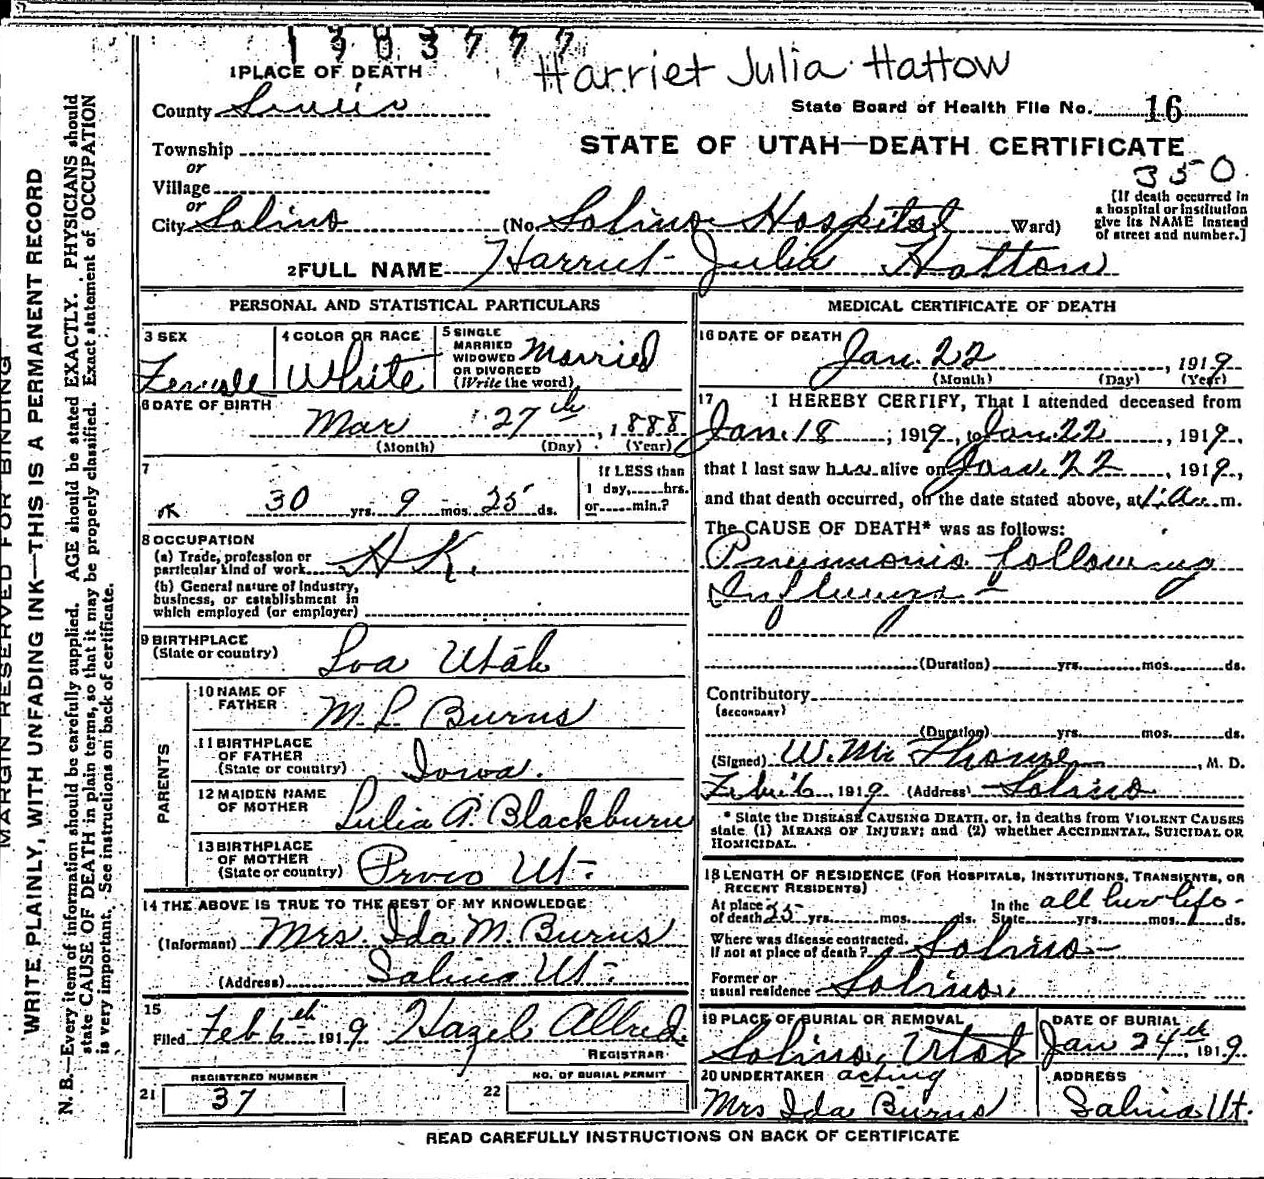 1303777
Harriet Julia Hattow
1 PLACE OF DEATH
County Sevier
State Board of Health File No. 16
STATE OF UTAH—DEATH CERTIFICATE
350
Township
or
Village
or
City Salina (No. Salina Hospital St. Ward)
[If death occurred in
a hospital or institution
give its NAME instead
of street and number.]
2 FULL NAME Harriet Julia Hatton
PERSONAL AND STATISTICAL PARTICULARS
3 SEX
Female
4 COLOR OR RACE
White
5 SINGLE
MARRIED
WIDOWED
OR DIVORCED
(Write the word)
Married
6 DATE OF BIRTH
Mar 27th, 1888
(Month) (Day) (Year)
7
OK 30 yrs. 9 mos. 25 ds.
If LESS than
1 day,......hrs.
or......min.?
8 OCCUPATION
(a) Trade, profession or
particular kind of work H K.
(b) General nature of industry,
business, or establishment in
which employed (or employer)
9 BIRTHPLACE
(State or country) Loa Utah
PARENTS
10 NAME OF
FATHER M. L. Burns
11 BIRTHPLACE
OF FATHER
(State or country) Iowa.
12 MAIDEN NAME
OF MOTHER Lulia A. Blackburn
13 BIRTHPLACE
OF MOTHER
(State or country) Provo Ut-
14 THE ABOVE IS TRUE TO THE BEST OF MY KNOWLEDGE
(Informant) Mrs. Ida M. Burns
(Address) Salina Ut-
15
Filed Feb 6th 1919 Hazel Allred.
REGISTRAR
REGISTERED NUMBER
21 37
NO. OF BURIAL PERMIT
22
MEDICAL CERTIFICATE OF DEATH
16 DATE OF DEATH
Jan. 22, 1919
(Month) (Day) (Year)
17 I HEREBY CERTIFY, That I attended deceased from
Jan. 18, 1919, to Jan. 22, 1919,
that I last saw her alive on Jan. 22, 1919,
and that death occurred, on the date stated above, at 1. a. m.
The CAUSE OF DEATH* was as follows:
Pneumonia following
Influenza -
(Duration) yrs. mos. ds.
Contributory
(SECONDARY)
(Duration) yrs. mos. ds.
(Signed) W. M., M. D.
Feb. 6, 1919 (Address) Salina
* State the DISEASE CAUSING DEATH, or, in deaths from VIOLENT CAUSES
state (1) MEANS OF INJURY; and (2) whether ACCIDENTAL, SUICIDAL OR
HOMICIDAL.
18 LENGTH OF RESIDENCE (FOR HOSPITALS, INSTITUTIONS, TRANSIENTS, OR
RECENT RESIDENTS)
At place
of death 25 yrs. mos. ds.
In the
State all her life- yrs. mos. ds.
Where was disease contracted,
if not at place of death? Salina-
Former or
usual residence Salina.
19 PLACE OF BURIAL OR REMOVAL
Salina, Utah
DATE OF BURIAL
Jan 24th, 1919.
20 UNDERTAKER acting
Mrs Ida Burns
ADDRESS
Salina Ut.
READ CAREFULLY INSTRUCTIONS ON BACK OF CERTIFICATE
MARGIN RESERVED FOR BINDING
WRITE PLAINLY, WITH UNFADING INK—THIS IS A PERMANENT RECORD
N. B.—Every item of information should be carefully supplied. AGE should be stated EXACTLY. PHYSICIANS should
state CAUSE OF DEATH in plain terms, so that it may be properly classified. Exact statement of OCCUPATION
is very important. See instructions on back of certificate.